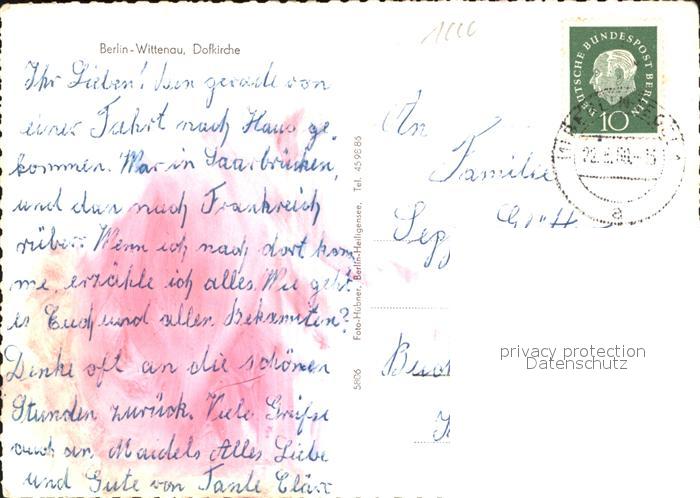 Berlin-Wittenau, Dofkirche
Ihr Lieben! bin gerade von
einer Fahrt nach Haus ge-
kommen. War in Saarbrücken,
und dan nach Frankreich
rüber. Wenn ich nach dort kom
me, erzähle ich alles. Wie geht
es Euch und allen Bekannten?
Denke oft an die schönen
Stunden zurück. Viele Grüße
auch an Maidels Alles Liebe
und Gute von Tante Cläre
5806 Foto-Hübner, Berlin-Heiligensee, Tel. 459886
An
Familie
Sepp
DEUTSCHE BUNDESPOST BERLIN
10
a
privacy protection
Datenschutz